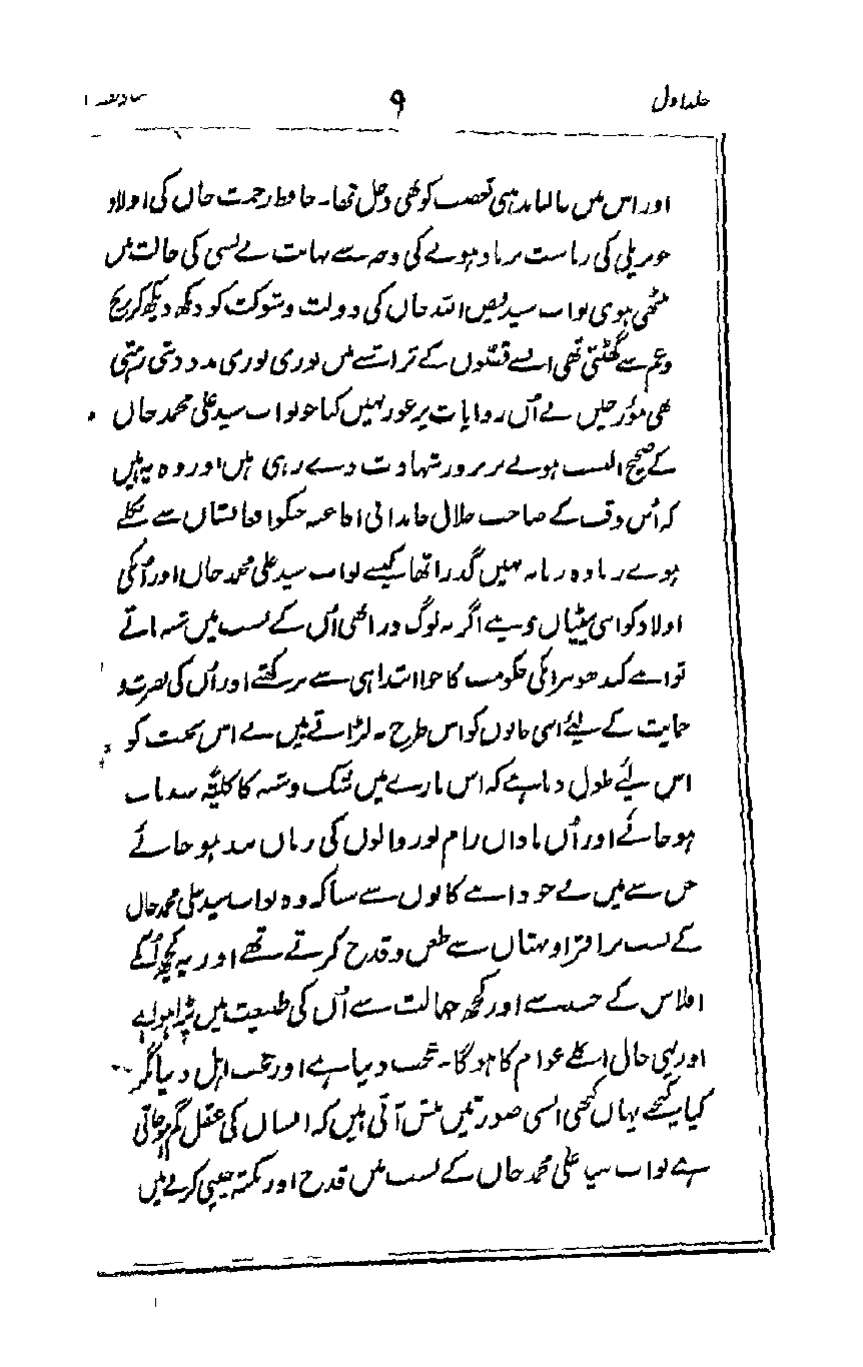 جلد اول ۹
اور اس میں غالباً مذہبی تعصب کو بھی دخل تھا۔ حافظ رحمت خاں کی اولاد
جو بریلی کی ریاست برباد ہونے کی وجہ سے نہایت بے بسی کی حالت میں
بیٹھی ہوی نواب سید فیض اللہ خاں کی دولت و شوکت کو دیکھ دیکھ کر رنج
و غم سے گھٹتی تھی ایسے قصوں کے تراشنے میں پوری پوری مدد دیتی رہتی
تھی مؤرخین نے اُن روایات پر غور نہیں کیا جو نواب سید علی محمد خاں
کے صحیح النسب ہونے پر پرزور شہادت دے رہی ہیں اور وہ یہ ہیں
کہ اُس وقت کے صاحب جلال خاندانی افاغنہ جنکو افغانستاں سے نکلے
ہوے زیادہ زمانہ نہیں گذرا تھا کیسے نواب سید علی محمد خاں اور اُنکی
اولاد کو اپنی بیٹیاں دیتے اگر یہ لوگ ذرا بھی اُن کے نسب میں شبہ پاتے
تو اپنے کندھوں پر اُنکی حکومت کا جوا ابتدا ہی سے نہ رکھتے اور اُن کی نصرت و
حمایت کے لیئے اپنی جانوں کو اس طرح نہ لڑاتے میں نے اس بحث کو
اس لیئے طول دیا ہے کہ اس بارے میں شک و شبہ کا کلیۃً سد باب
ہو جائے اور اُن ناداں رام پور والوں کی زباں بند ہو جائے
جن سے میں نے خود اپنے کانوں سے سنا کہ وہ نواب سید علی محمد خاں
کے نسب پر افترا و بہتاں سے طعن و قدح کرتے تھے اور یہ کچھ اُنکے
افلاس کے حسد سے اور کچھ جہالت سے اُن کی طبیعت میں پڑا ہوا ہے
اور یہی حال اگلے عوام کا ہوگا۔ عجب دنیا ہے اور عجب اہل دنیا مگر
کیا کیجئے یہاں کبھی ایسی صورتیں پیش آتی ہیں کہ انساں کی عقل گم ہو جاتی
ہے نواب سید علی محمد خاں کے نسب میں قدح اور نکتہ چینی کرنے میں